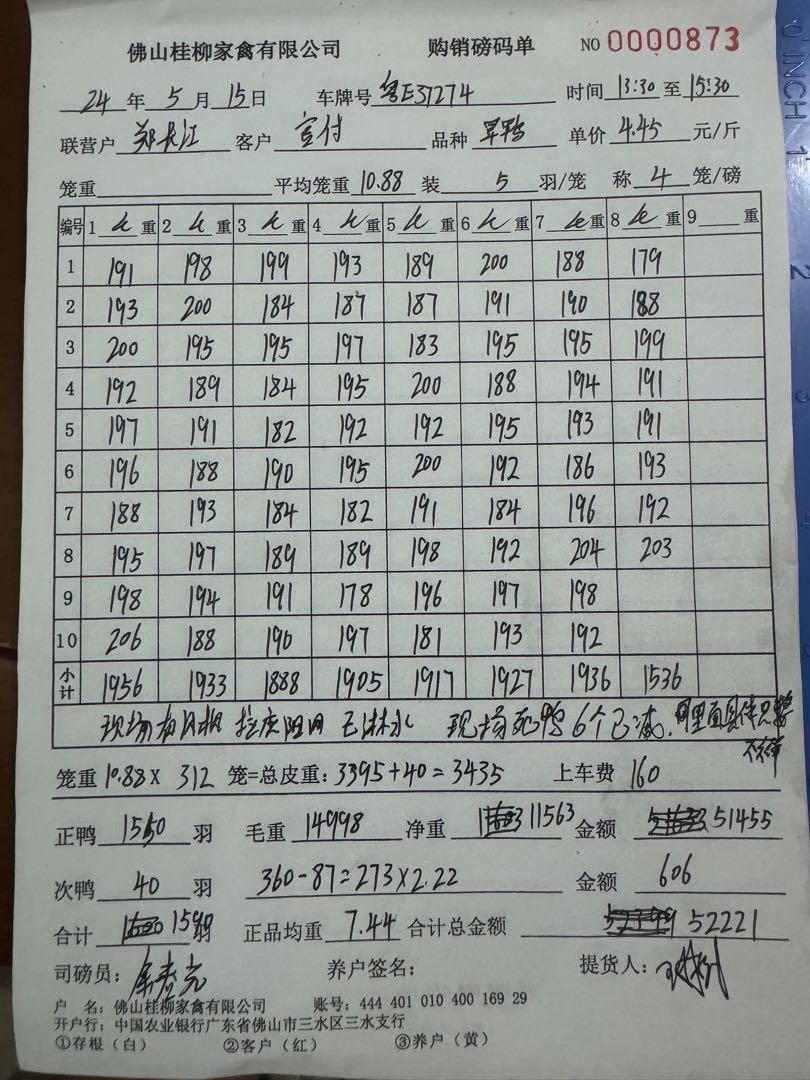 佛山桂柳家禽有限公司 购销磅码单 NO 0000873
24 年 5 月 15 日 车牌号 粤E37274 时间 13:30 至 15:30
联营户 郑长江 客户 宣付 品种 旱鸭 单价 4.45 元/斤
笼重 平均笼重 10.88 装 5 羽/笼 称 4 笼/磅
编号 1 重 2 重 3 重 4 重 5 重 6 重 7 重 8 重 9 重
1 191 198 199 193 189 200 188 179
2 193 200 184 187 187 191 190 188
3 200 195 195 197 183 195 195 199
4 192 189 184 195 200 188 194 191
5 197 191 182 192 192 195 193 191
6 196 188 190 195 200 192 186 193
7 188 193 184 182 191 184 196 192
8 195 197 189 189 198 192 204 203
9 198 194 191 178 196 197 198
10 206 188 190 197 181 193 192
小计 1956 1933 1888 1905 1917 1927 1936 1536
现场有风机 已淋水 现场死鸭6个已减
笼重 10.88 X 312 笼=总皮重: 3395+40=3435 上车费 160
正鸭 1550 羽 毛重 14998 净重 11563 金额 51455
次鸭 40 羽 360-87=273×2.22 金额 606
合计 1590 羽 正品均重 7.44 合计总金额 52221
司磅员: 养户签名: 提货人:
户 名: 佛山桂柳家禽有限公司 账号: 444 401 010 400 169 29
开户行: 中国农业银行广东省佛山市三水区三水支行
①存根（白） ②客户（红） ③养户（黄）
0 INCH 1
2
3
4